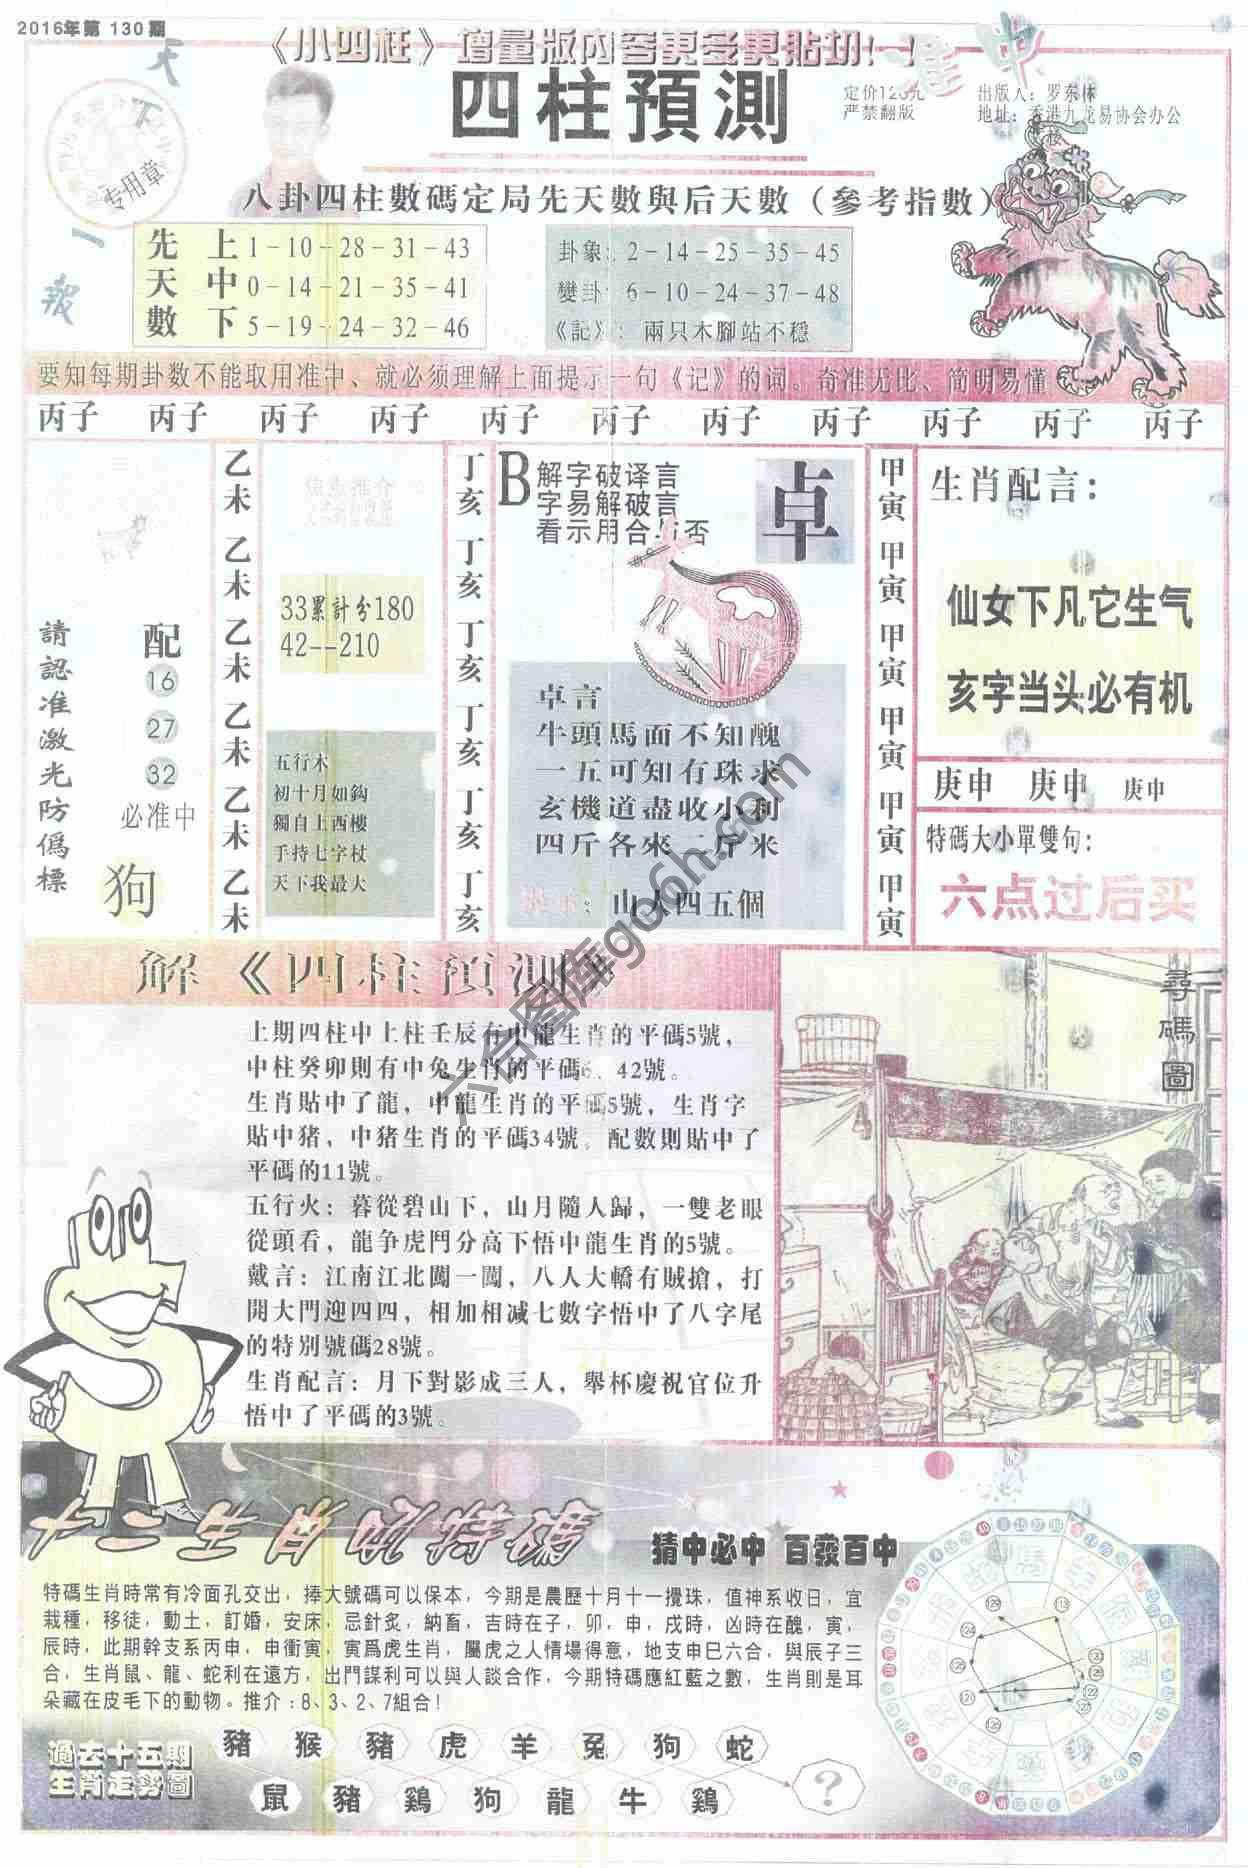 2016年第 130 期
《小四柱》增量版内容更多更貼切！！
準中
天下一報
专用章
四柱預測
定价120元
严禁翻版
出版人：罗东林
地址：香港九龙易协会办公楼
八卦四柱數碼定局先天數與后天數（參考指數）
先天數
上 1－10－28－31－43
中 0－14－21－35－41
下 5－19－24－32－46
卦象：2－14－25－35－45
變卦：6－10－24－37－48
《記》：兩只木腳站不穩
要知每期卦数不能取用准中、就必须理解上面提示一句《记》的词。奇准无比、简明易懂
丙子 丙子 丙子 丙子 丙子 丙子 丙子 丙子 丙子 丙子 丙子
請認准激光防僞標
配
16
27
32
必准中
狗
乙未 乙未 乙未 乙未 乙未 乙未
33累計分180
42--210
五行木
初十月如鈎
獨自上西樓
手持七字杖
天下我最大
丁亥 丁亥 丁亥 丁亥 丁亥 丁亥
B
解字破译言
字易解破言
看示用合与否
卓
卓言
牛頭馬面不知醜
一五可知有珠求
玄機道盡收小利
四斤各來二斤米
：山人四五個
甲寅 甲寅 甲寅 甲寅 甲寅 甲寅
生肖配言：
仙女下凡它生气
亥字当头必有机
庚申 庚申 庚申
特碼大小單雙句：
六点过后买
解《四柱預測》
上期四柱中上柱壬辰有中龍生肖的平碼5號，
中柱癸卯則有中兔生肖的平碼6、42號。
生肖貼中了龍，中龍生肖的平碼5號，生肖字
貼中猪，中猪生肖的平碼34號。配數則貼中了
平碼的11號。
五行火：暮從碧山下，山月隨人歸，一雙老眼
從頭看，龍争虎鬥分高下悟中龍生肖的5號。
戴言：江南江北闖一闖，八人大轎有賊搶，打
開大門迎四四，相加相减七數字悟中了八字尾
的特别號碼28號。
生肖配言：月下對影成三人，舉杯慶祝官位升
悟中了平碼的3號。
尋碼圖
六合图库go6h.com
猜中必中 百發百中
特碼生肖時常有冷面孔交出，捧大號碼可以保本，今期是農歷十月十一攪珠，值神系收日，宜
栽種，移徒，動土，訂婚，安床，忌針炙，納畜，吉時在子，卯，申，戌時，凶時在醜，寅，
辰時，此期幹支系丙申，申衝寅，寅爲虎生肖，屬虎之人情場得意，地支申巳六合，與辰子三
合，生肖鼠、龍、蛇利在遠方，出門謀利可以與人談合作，今期特碼應紅藍之數，生肖則是耳
朵藏在皮毛下的動物。推介：8、3、2、7組合！
過去十五期
生肖走勢圖
豬 猴 豬 虎 羊 兔 狗 蛇
鼠 豬 鷄 狗 龍 牛 鷄 ？